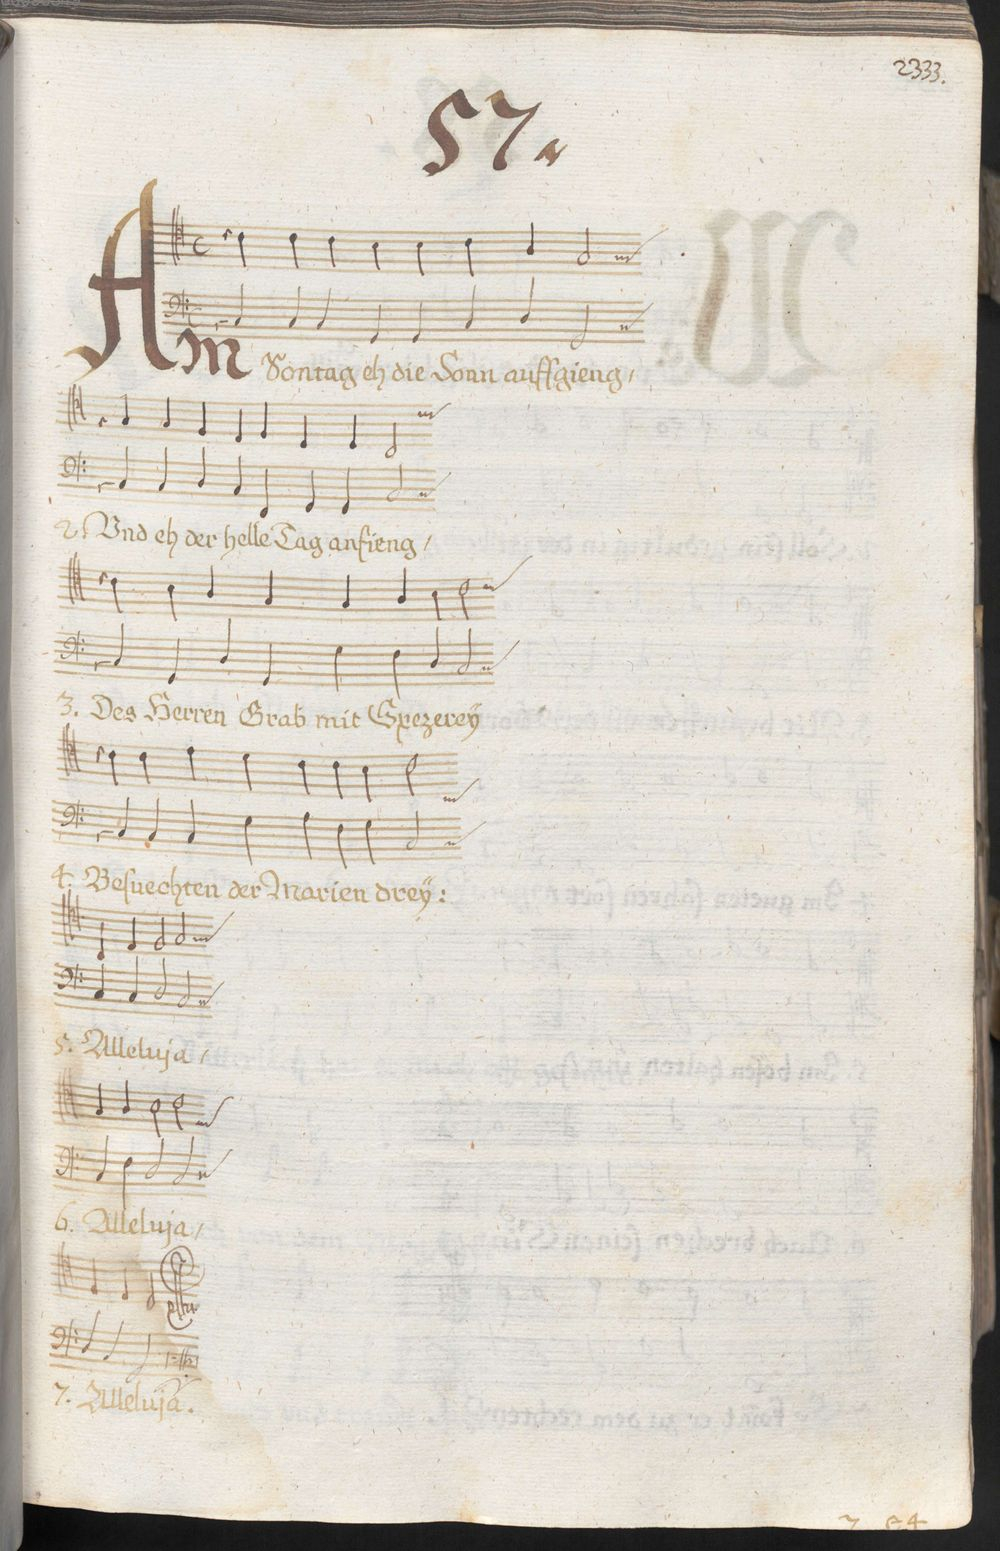 2333.
57.
Am Sontag eh die Sonn auffgieng/
2. Vnd eh der helle Tag anfieng/
3. Des Herren Grab mit Spezereÿ
4. Besuechten der Marien dreÿ:
5. Alleluja/
6. Alleluja/
7. Alleluja.